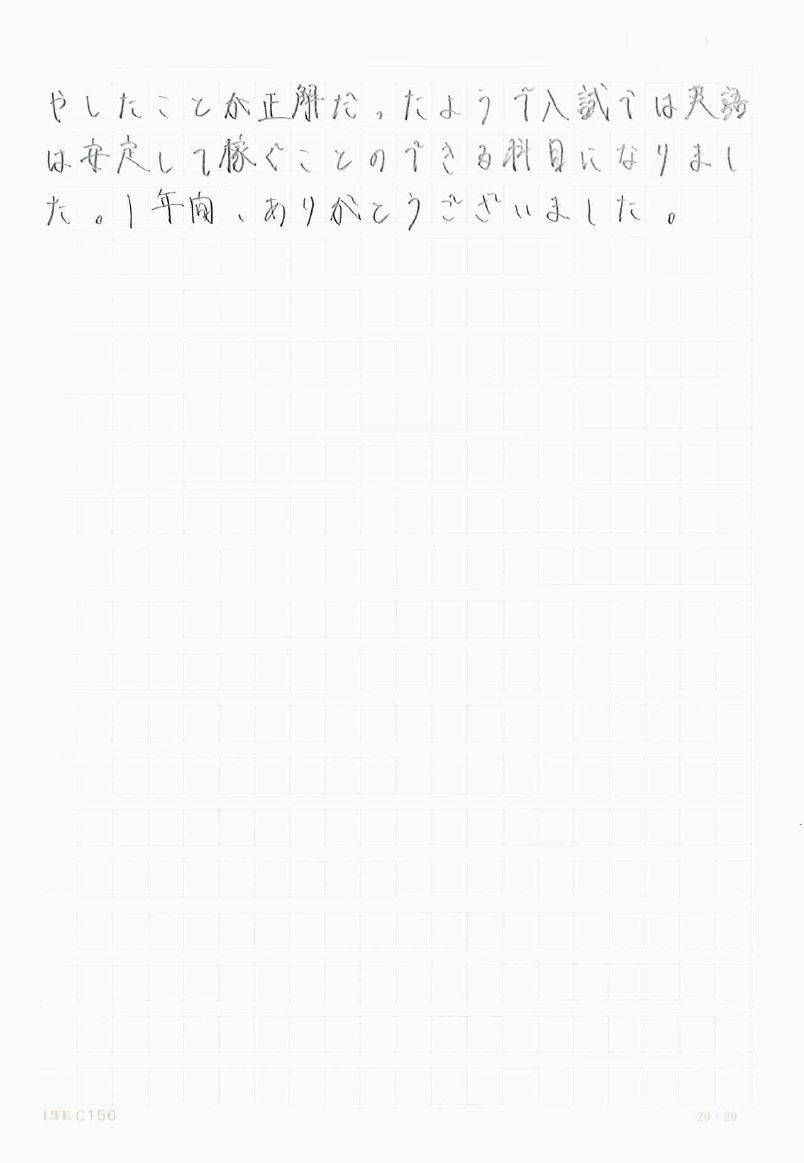 やしたことが正解だったようで入試では英語
は安定して稼ぐことのできる科目になりまし
た。1年間、ありがとうございました。
LIFE C156
20×20